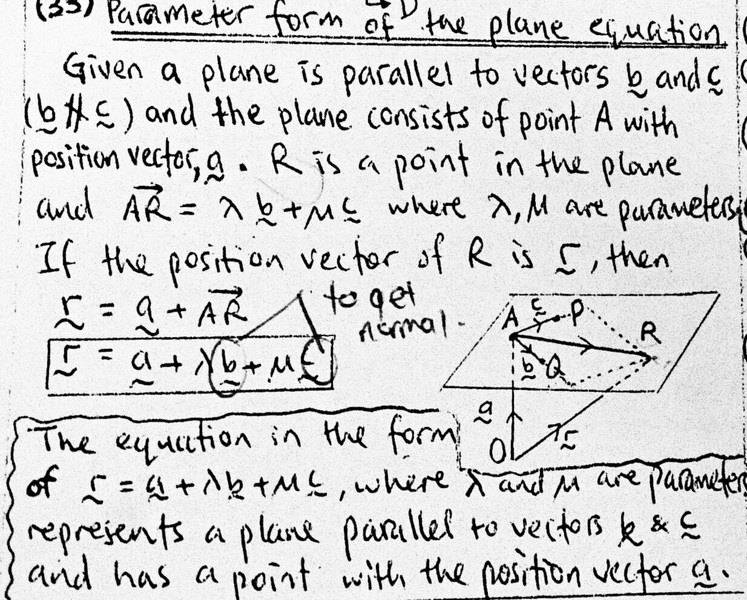 (33) Parameter form of the plane equation
Given a plane is parallel to vectors b and c
(b ∦ c) and the plane consists of point A with
position vector, a. R is a point in the plane
and AR = λb + μc where λ, μ are parameters
If the position vector of R is r, then
r = a + AR
to get
normal.
r = a + λb + μc
A c P R
b Q
a
O r
The equation in the form
of r = a + λb + μc, where λ and μ are parameters
represents a plane parallel to vectors b & c
and has a point with the position vector a.